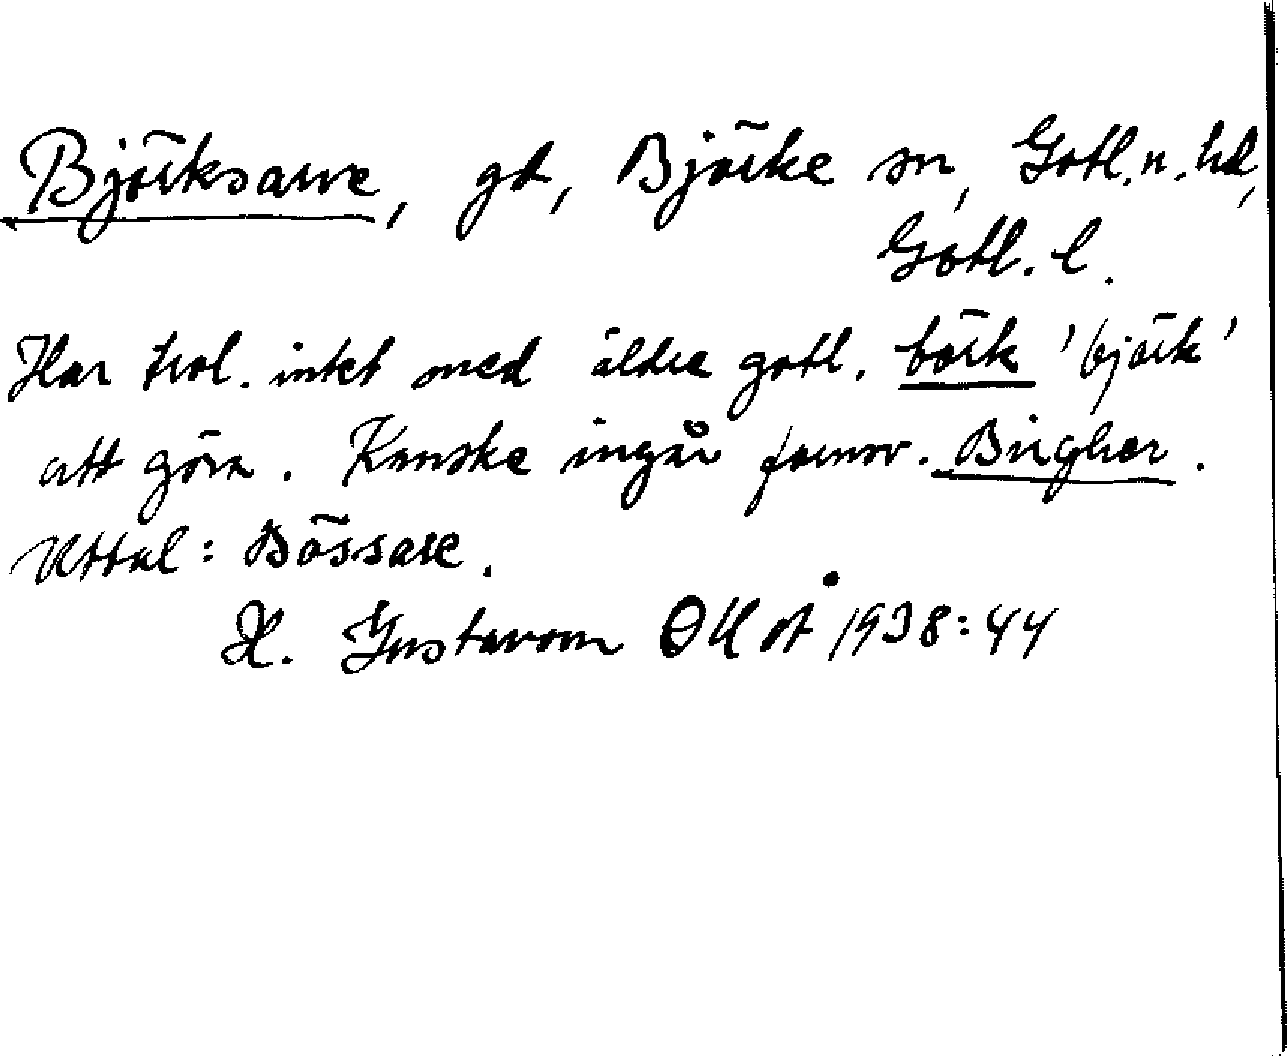 Björksarve, gd, Björke sn, Gotl.n.hd,
Gotl. l.
Har trol. intet med äldre gotl. börk 'björk'
att göra. Kanske ingår fornsv. Birgher.
Uttal: Bössare.
H. Gustavson OUoÅ 1938:44